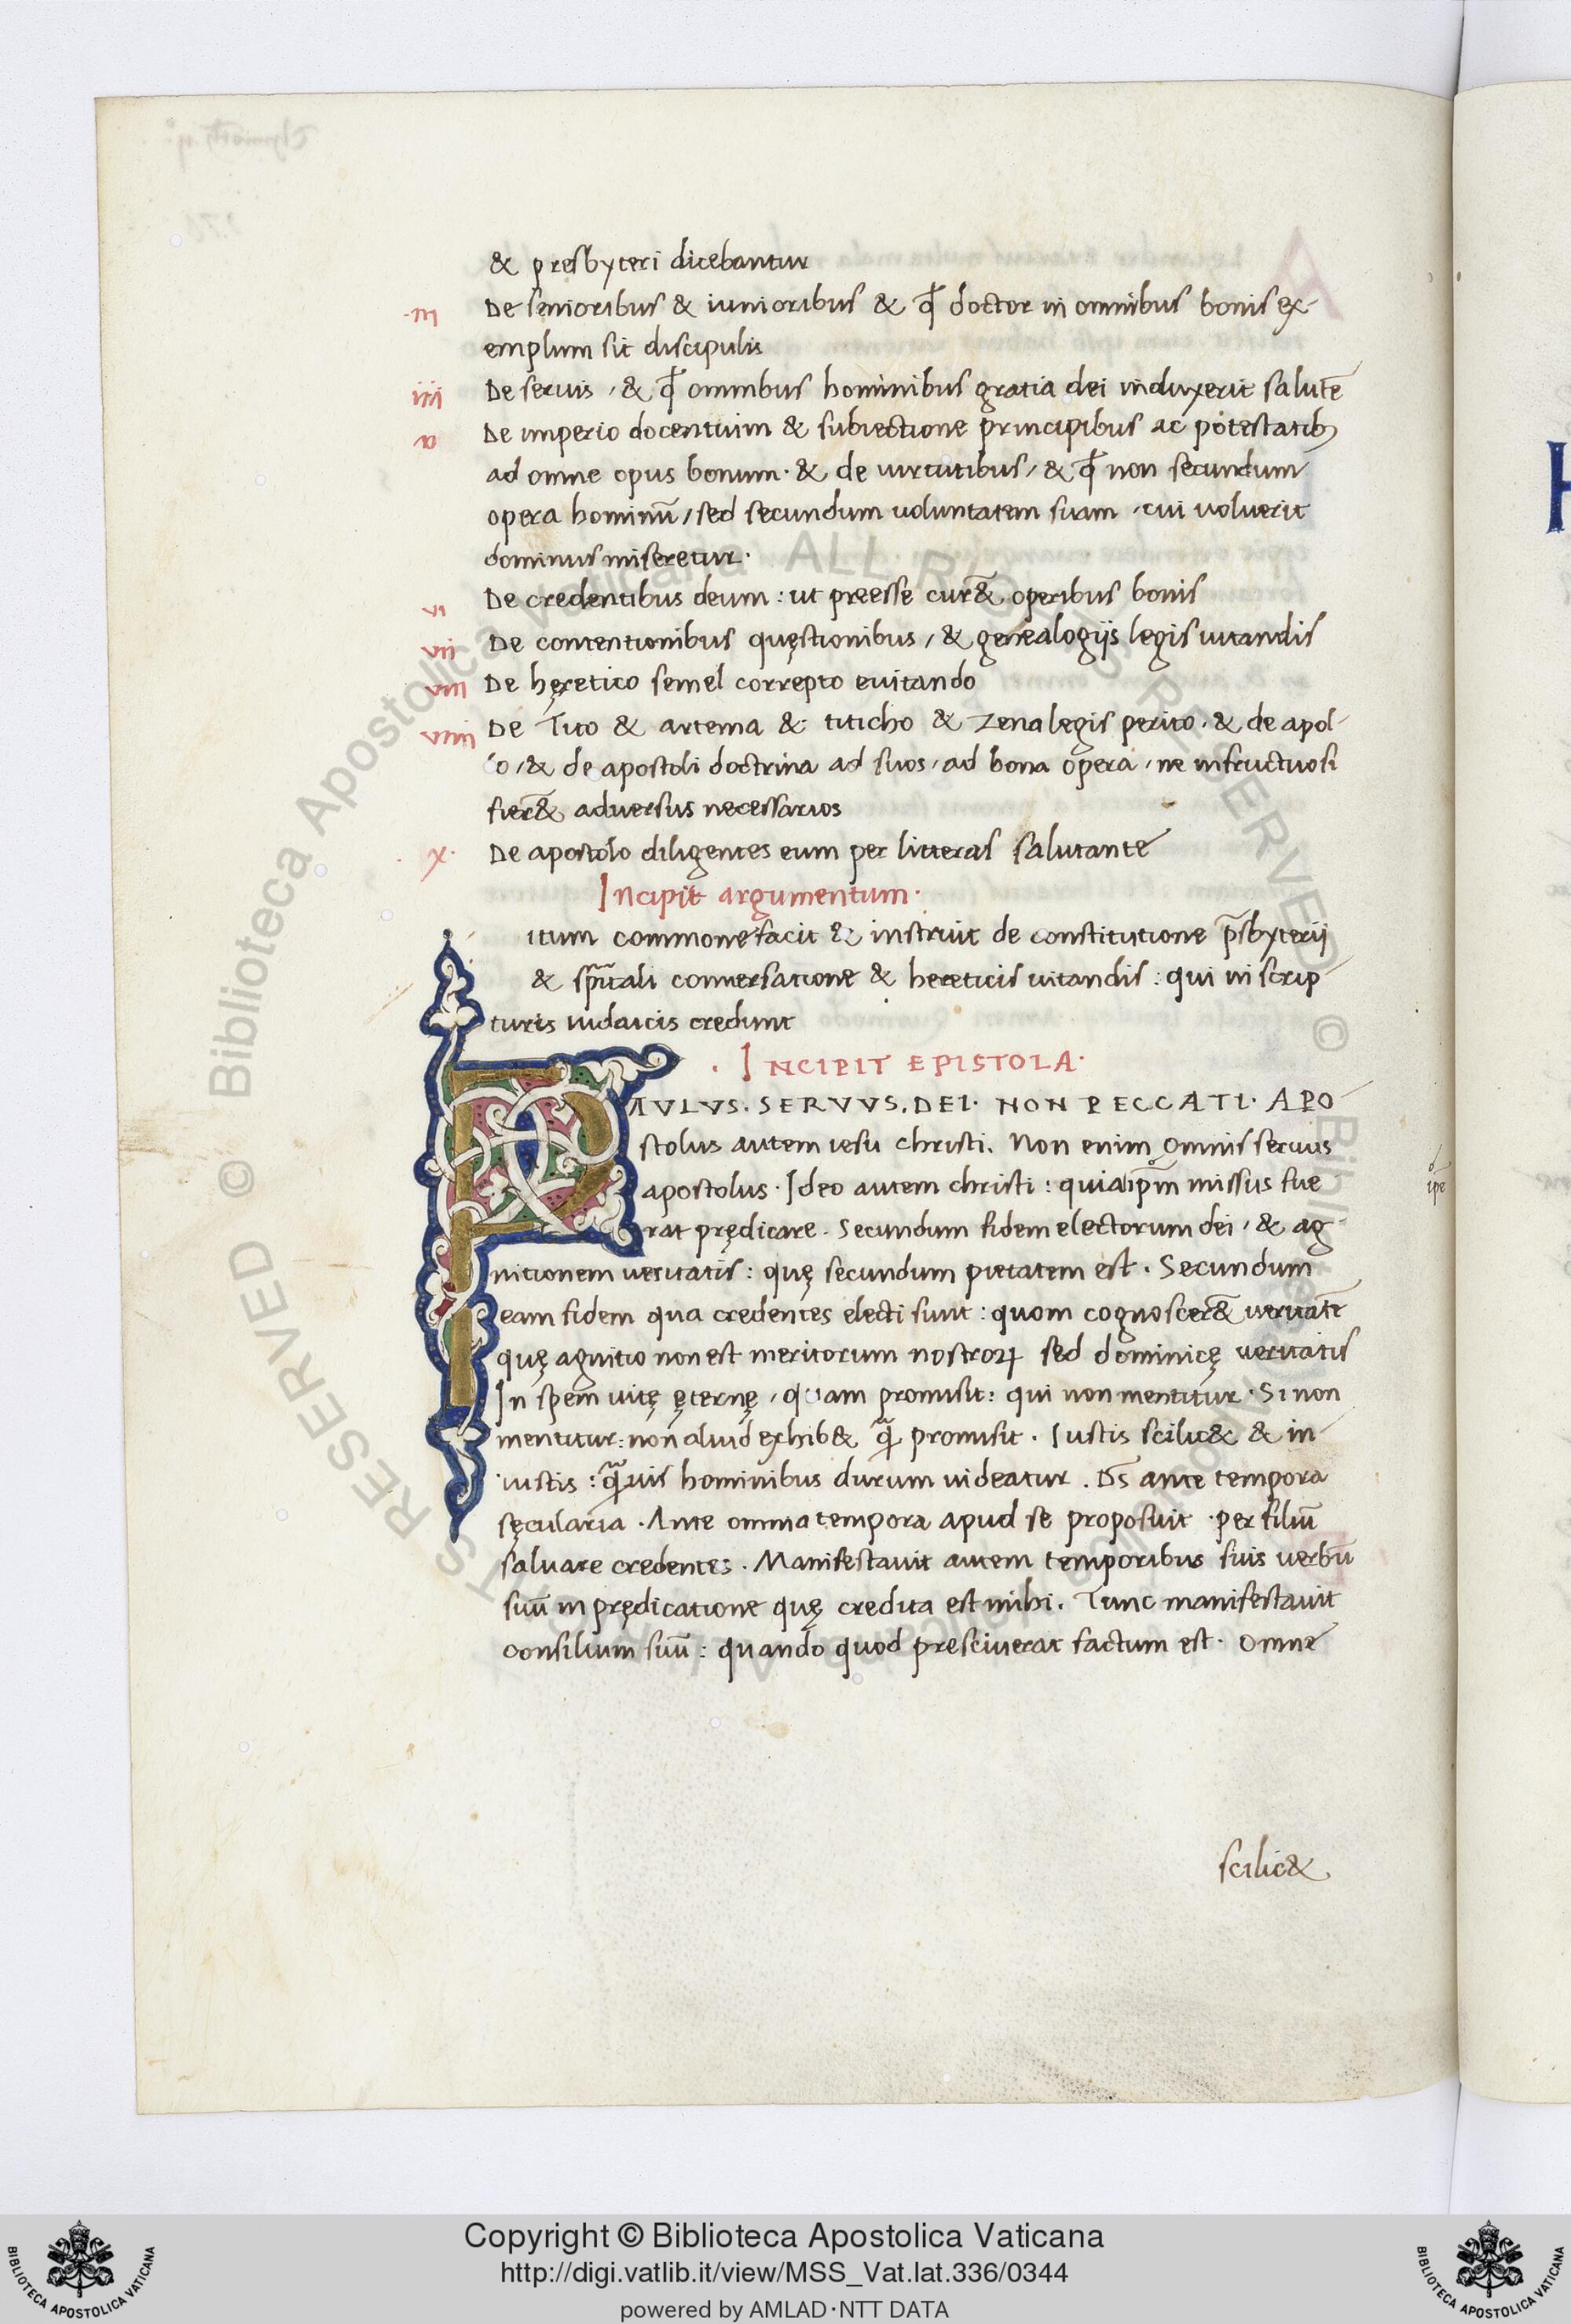 & presbyteri dicebantur
·III De senioribus & iunioribus & qđ doctor in omnibus bonis ex-
emplum sit discipulis
iiii De seruis, & qđ omnibus hominibus gratia dei induxerit salutē
v De imperio docentium & subiectione principibus ac potestatibꝫ
ad omne opus bonum· & de uirtutibus, & qđ non secundum
opera hominū, sed secundum uoluntatem suam, cui uoluerit
dominus miseretur·
vi De credentibus deum: ut preesse curē& operibus bonis
vii De contentionibus quęstionibus, & genealogijs legis uitandis
viii De hęretico semel correpto euitando
viiii De Tito & artema & titicho & Zena legis perito· & de apol-
lo, & de apostoli doctrina ad suos, ad bona opera, ne infructuosi
fierē& aduersus necessarios
·x· De apostolo diligentes eum per litteras salutante
Incipit argumentum·
itum commonefacit & instruit de constitutione p̄sbyterij
& sp̄uali conuersatione & hereticis uitandis: qui in scrip-
turis iudaicis credunt
· INCIPIT EPISTOLA·
PAULUS. SERVUS. DEI. NON PECCATI. APO-
stolus autem iesu christi. Non enim omnis seruus
apostolus. Ideo autem christi: quia ip̄m missus fue
rat prędicare. Secundum fidem electorum dei, & ag-
nitionem ueritatis: quę secundum pietatem est. Secundum
eam fidem qua credentes electi sunt: quom cognoscerē& ueritatē
quę agnitio non est meritorum nostroꝝ sed dominicę ueritatis
In spem uitę ęternę, quam promisit: qui non mentitur. Si non
mentitur: non aliud exhib& q̄ promisit. Iustis scilic& & in-
iustis: q̄uis hominibus durum uideatur. Ds̄ ante tempora
sęcularia. Ante omnia tempora apud se proposuit per filiū
saluare credentes. Manifestauit autem temporibus suis uerbū
suū in prędicatione quę credita est mihi. Tunc manifestauit
consilium suū: quando quod presciuerat factum est. Omne
ip̄e
scilic&
Copyright © Biblioteca Apostolica Vaticana
http://digi.vatlib.it/view/MSS_Vat.lat.336/0344
powered by AMLAD·NTT DATA
BIBLIOTECA APOSTOLICA VATICANA
BIBLIOTECA APOSTOLICA VATICANA
© Biblioteca Apostolica Vaticana ALL RIGHTS RESERVED